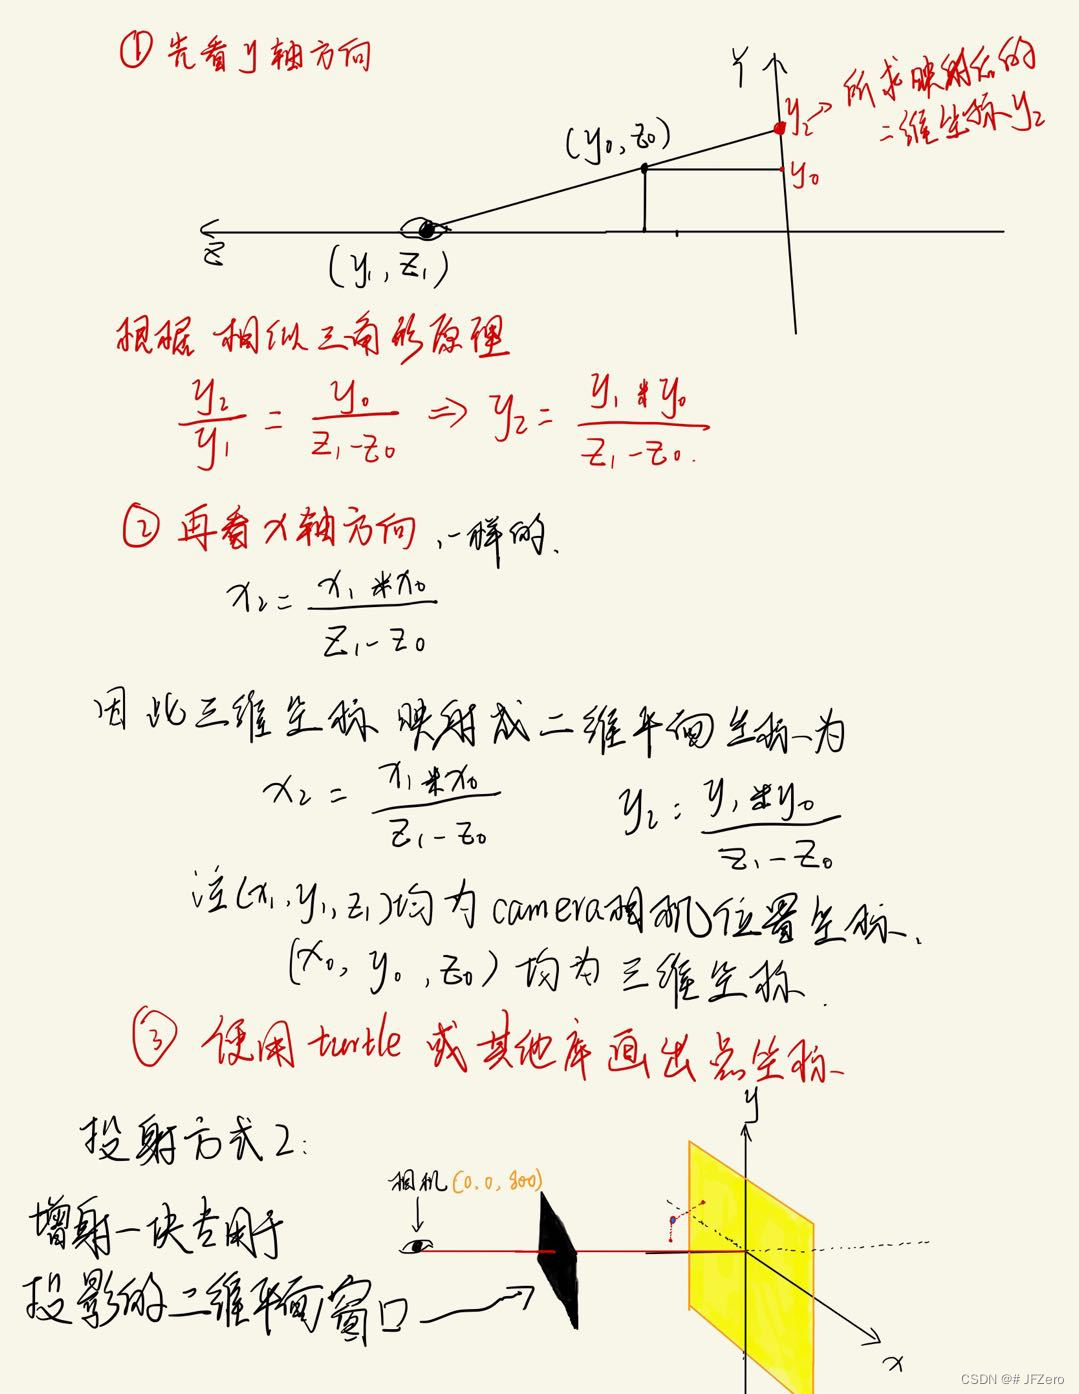 ① 先看y轴方向
Y
y₂ → 所求映射后的
二维坐标y₂
(y₀, z₀)
y₀
z
(y₁, z₁)
根据 相似三角形原理
y₂/y₁ = y₀/(z₁-z₀) ⇒ y₂ = (y₁*y₀)/(z₁-z₀).
② 再看x轴方向,一样的.
x₂ = (x₁*x₀)/(z₁-z₀)
因此三维坐标 映射成二维平面坐标为
x₂ = (x₁*x₀)/(z₁-z₀) y₂ = (y₁*y₀)/(z₁-z₀)
注(x₁,y₁,z₁)均为camera相机位置坐标.
(x₀, y₀, z₀) 均为三维坐标.
③ 使用turtle或其他库画出点坐标
y
投射方式2:
相机(0.0,800)
增射一块专用于
投影的二维平面窗口
x
CSDN @# JFZero